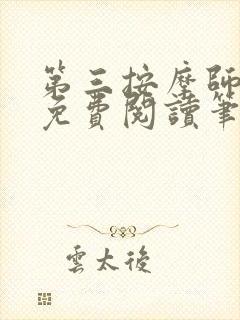 第三按摩師
免費閱讀筆
雲太後